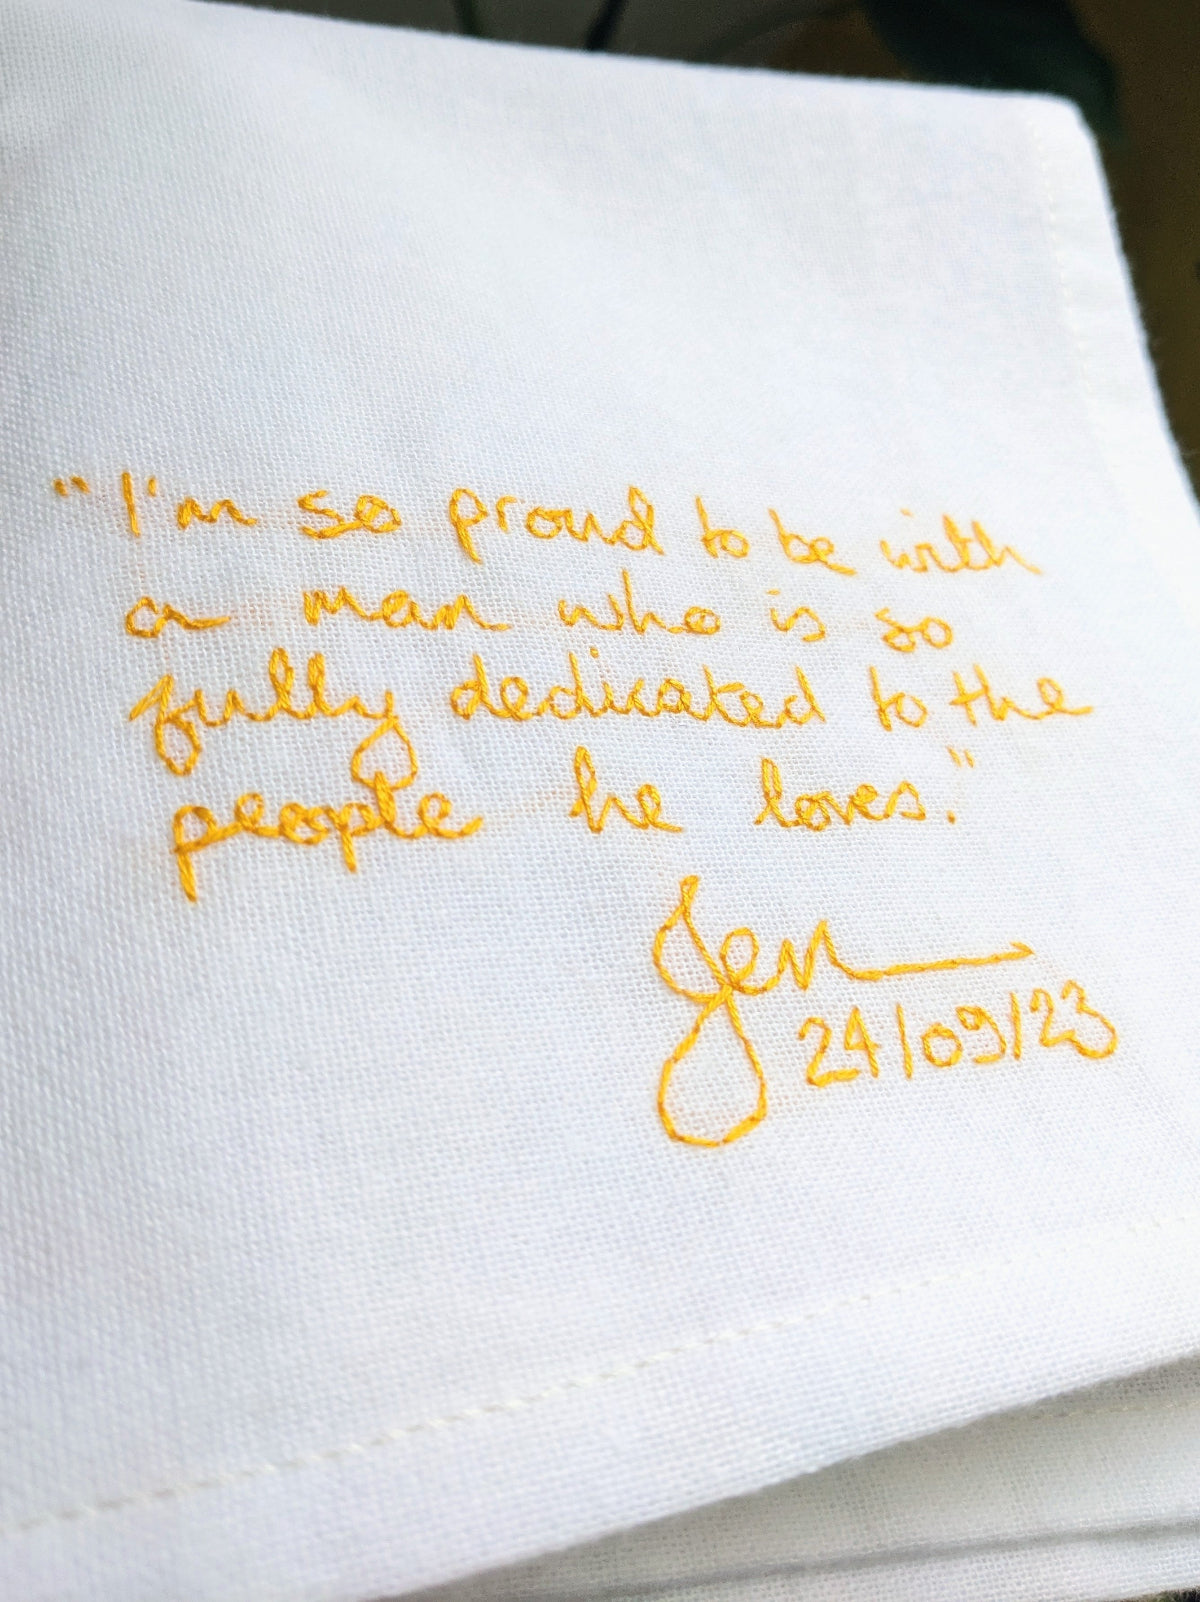 "I'm so proud to be with
a man who is so
fully dedicated to the
people he loves."
Jen
24/09/23